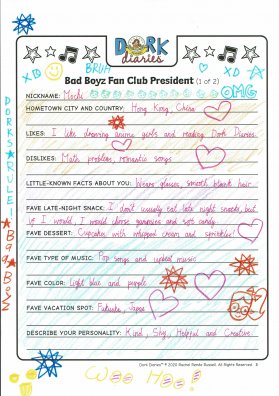 DORK
diaries
XD
BRUH
XD
Bad Boyz Fan Club President (1 of 2)
NICKNAME: Machi
OMG
HOMETOWN CITY AND COUNTRY: Hong Kong, China
LIKES: I like drawing anime girls and reading Dork Diaries.
DISLIKES: Math problem, romantic songs
LITTLE-KNOWN FACTS ABOUT YOU: Wears glasses, smooth black hair
FAVE LATE-NIGHT SNACK: I don't usually eat late night snacks, but
if I would, I would choose gummies and soft candy.
FAVE DESSERT: Cupcakes with whipped cream and sprinkles!
FAVE TYPE OF MUSIC: Pop songs and
FAVE COLOR: Light blue and purple
FAVE VACATION SPOT: Fukuoka, Japan
DESCRIBE YOUR PERSONALITY: Kind, Shy, Helpful and Creative
DORKS RULE!
Bad Boyz
Dork Diaries ® © 2020 Rachel Renée Russell. All Rights Reserved. 8
Woo Hoo!